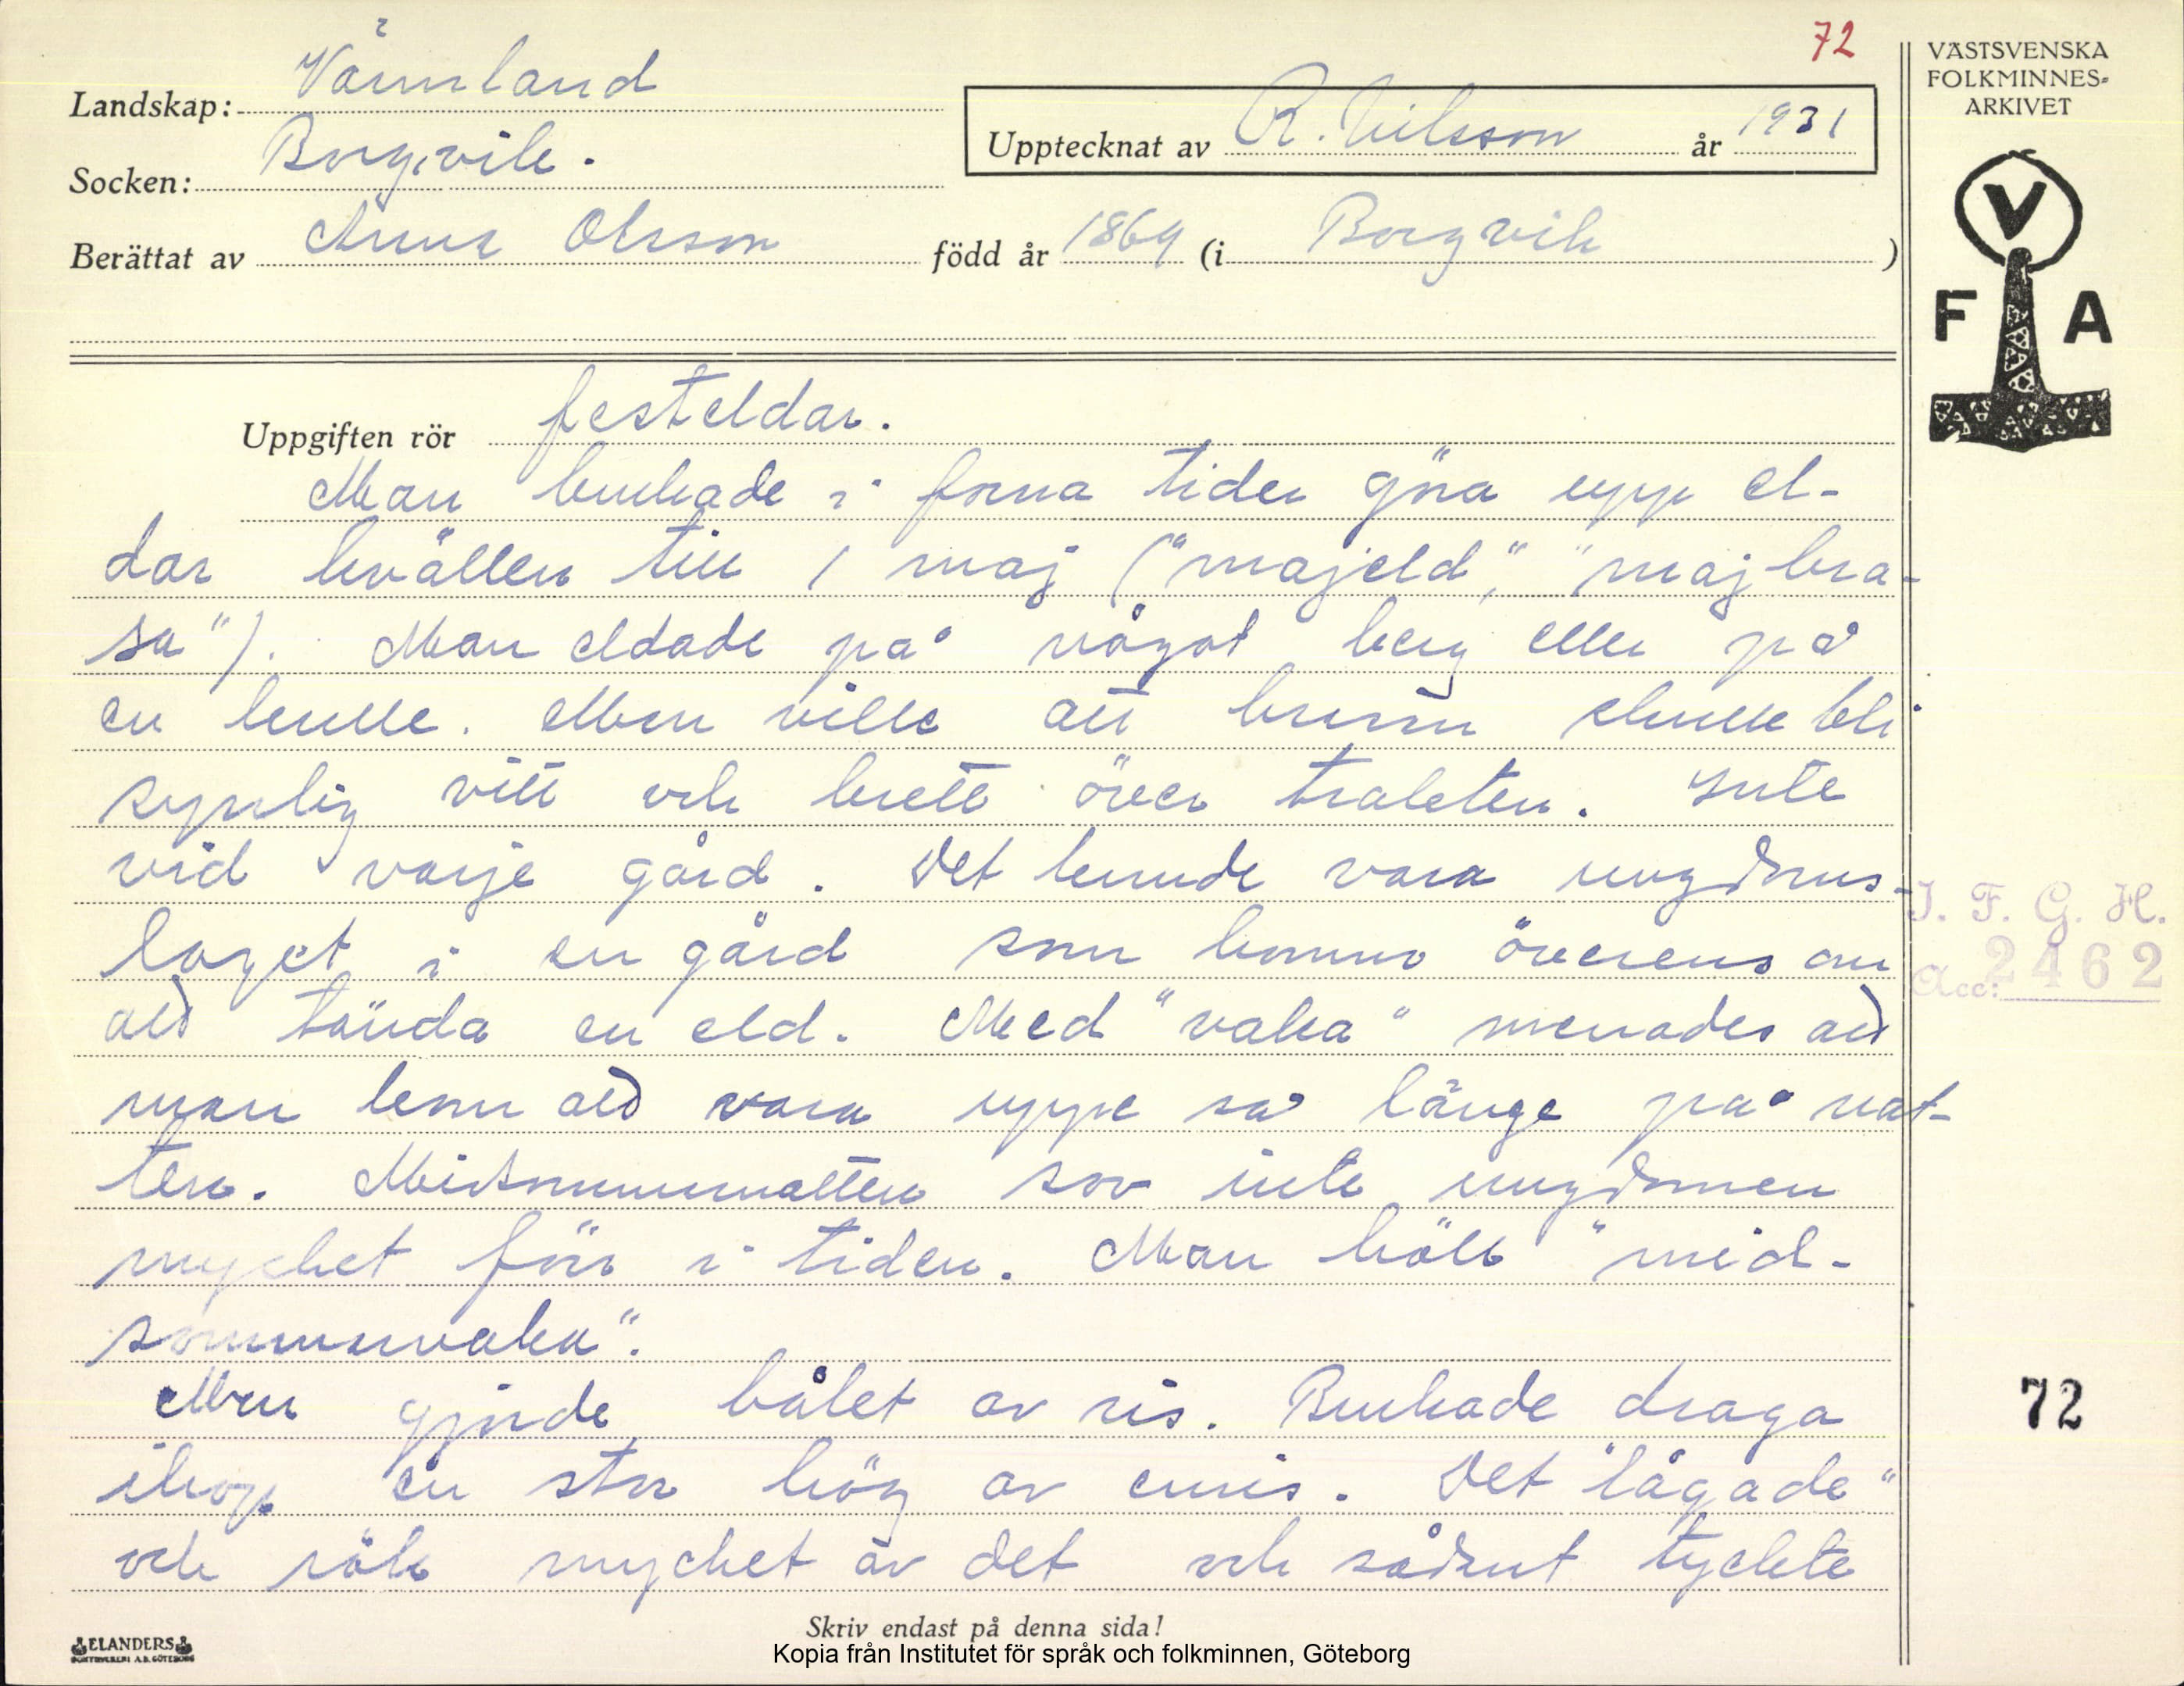 72
VÄSTSVENSKA
FOLKMINNES-
ARKIVET
Landskap: Värmland
Upptecknat av R. Nilsson år 1931
Socken: Borgvik.
Berättat av Anna Olsson född år 1869 (i Borgvik )
V
F A
Uppgiften rör festeldar.
Man brukade i forna tider göra upp el-
dar kvällen till 1 maj ("majeld", "majbra-
sa"). Man eldade på något berg eller på
en kulle. Man ville att brasan skulle bli
synlig vitt och brett över trakten. Inte
vid varje gård. Det kunde vara ungdoms-
laget i en gård som kommo överens om
att tända en eld. Med "vaka" menades att
man kom att vara uppe så länge på nat-
ten. Midsommarnatten sov inte ungdomen
mycket förr i tiden. Man höll "mid-
sommarvaka".
Man gjorde bålet av ris. Brukade draga
ihop en stor hög av enris. Det "lågade"
och rök mycket av det och sådant tyckte
I. F. G. H.
Acc: 2462
72
Skriv endast på denna sida!
ELANDERS
BOKTRYCKERI A.B. GÖTEBORG
Kopia från Institutet för språk och folkminnen, Göteborg